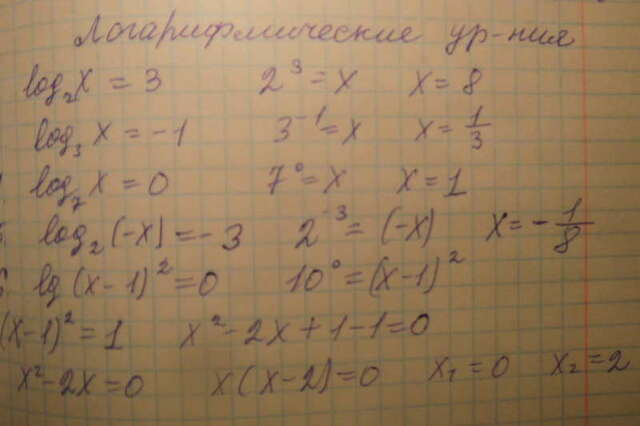 Логарифмические ур-ния
log₂x = 3 2³ = x x = 8
log₃x = -1 3⁻¹ = x x = 1/3
log₇x = 0 7⁰ = x x = 1
log₂(-x) = -3 2⁻³ = (-x) x = -1/8
lg(x-1)² = 0 10⁰ = (x-1)²
(x-1)² = 1 x² - 2x + 1 - 1 = 0
x² - 2x = 0 x(x-2) = 0 x₁ = 0 x₂ = 2